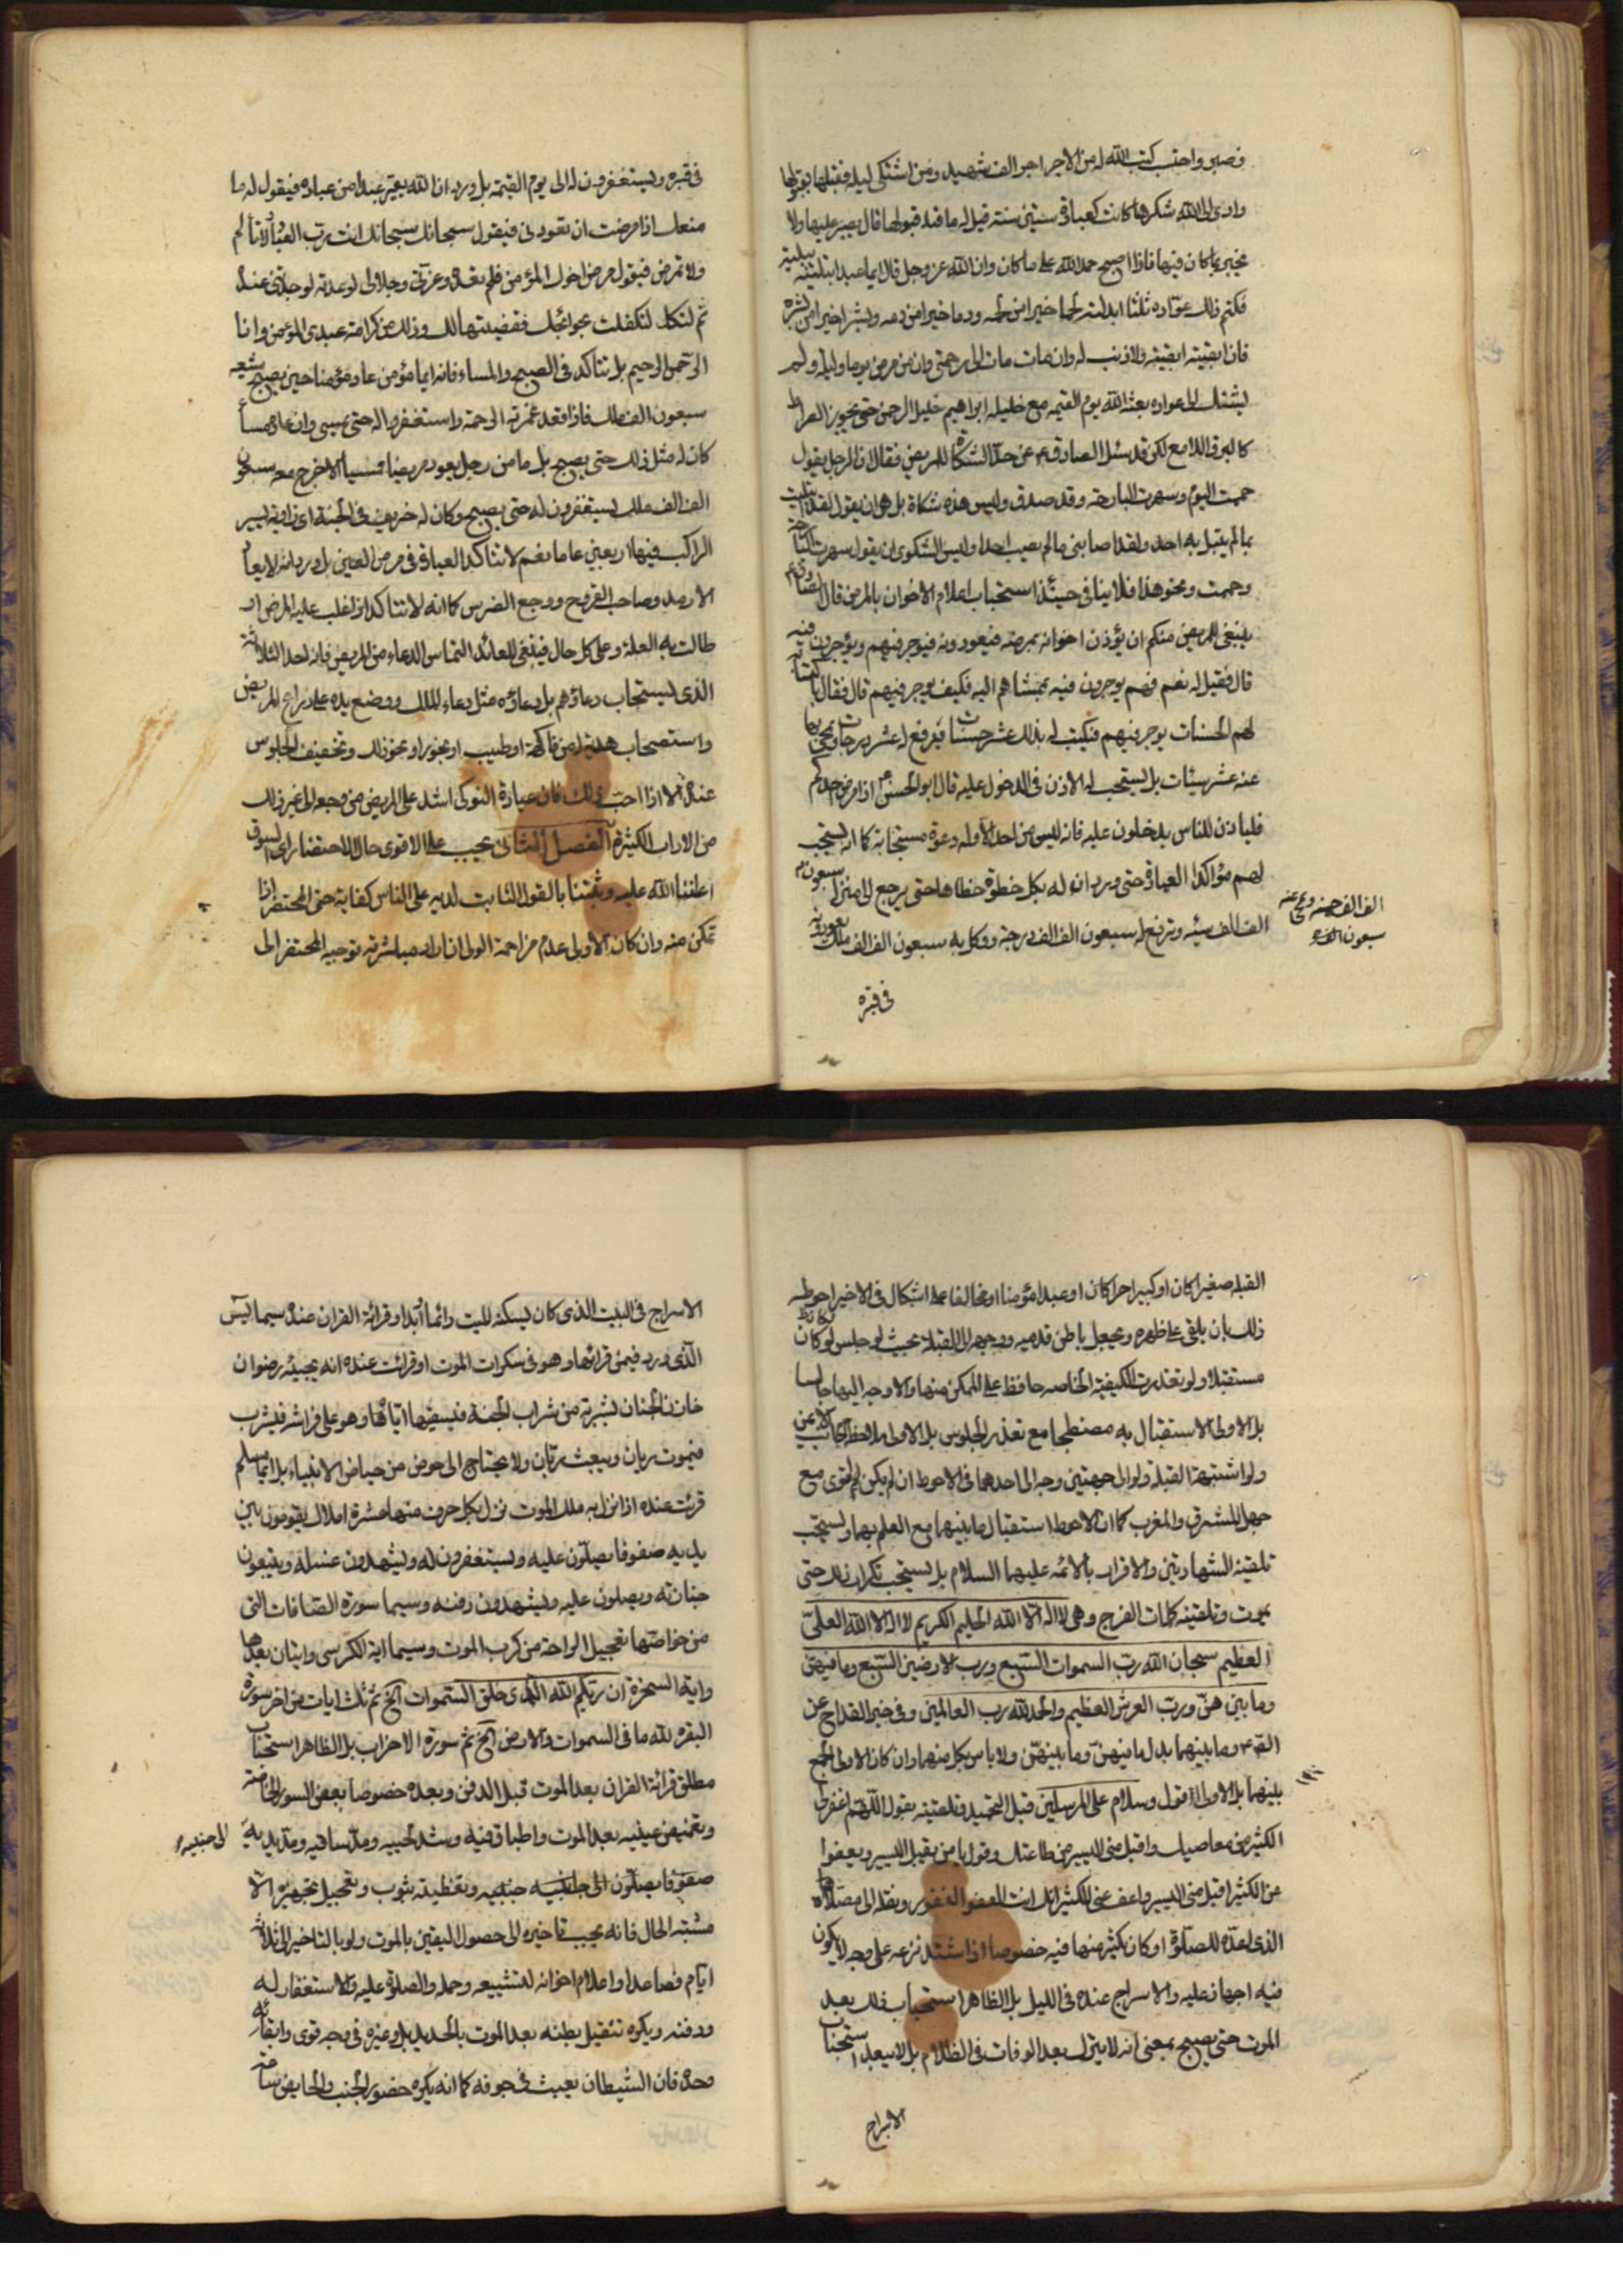 فصبر واحتسب كتب الله له من الاجر اجر الف شهيد ومن اشتكى ليلة فقبلها بقبولها
وادى الى الله شكرها كانت كعبادة ستين سنة قيل له ما قبولها قال يصبر عليها ولا
يخبر بما كان فيها فاذا اصبح حمد الله على ما كان وان الله عز وجل قال ايما عبد ابتليته ببلية
فكتم ذلك عواده ثلثا ابدلته لحما خيرا من لحمه ودما خيرا من دمه وبشرا خيرا من بشره
فان ابقيته ابقيته ولا ذنب له وان مات مات الى رحمتى وان من مرض يوما وليلة ولم
يشتك الى عواده بعثه الله يوم القيمه مع خليله ابراهيم خليل الرحمن حتى يجوز الصراط
كالبرق اللامع لكن قد سئل الصادق ع عن حد الشكاة للمريض فقال ان الرجل يقول
حممت اليوم وسهرت البارحة وقد صدق وليس هذه شكاة بل هى ان يقول لقد ابتليت
بما لم يبتل به احد ولقد اصابنى ما لم يصيب احدا وليس الشكوى ان يقول سهرت البارحة
وحممت ونحو هذا فلا ينافى حينئذ استحباب اعلام الاخوان بالمرض قال الصادق ع
ينبغى للمريض منكم ان يؤذن اخوانه بمرضه فيعودونه فيوجر فيهم ويؤجرون فيه
قال فقيل له نعم فهم يوجرون فيه بممشاهم اليه فكيف يوجر فيهم قال فقال باكتسابه
لهم الحسنات يوجر فيهم فيكتب له بذلك عشر حسنات ويرفع له عشر درجات ويمحى بها
عنه عشر سيئات بل يستحب له الاذن فى الدخول عليه قال ابو الحسن ع اذا مرض احدكم
فلياذن للناس يدخلون عليه فانه ليس من احد الا وله دعوة مستجابة كما انه يستحب
لهم مؤاكدا العيادة حتى ورد ان له بكل خطوة خطاها حتى يرجع الى منزله سبعون
الف الف حسنه ومحى عنه سبعون
الف الف سيئه وترفع له سبعون الف الف درجة ووكل به سبعون الف الف ملك يعودونه
فى قبره
فى قبره ويستغفرون له الى يوم القيمة بل ورد ان الله يعير عبدا من عباده فيقول له ما
منعك اذا مرضت ان تعودنى فيقول سبحانك سبحانك انت رب العباد لا تألم
ولا تمرض فيقول مرض اخوك المؤمن فلم تعده وعزتى وجلالى لو عدته لوجدتنى عنده
ثم لتكلفت بحوائجك فقضيتها لك وذلك من كرامة عبدى المؤمن وانا
الرحمن الرحيم بل تتاكد فى الصبح والمساء فانه ايما مؤمن عاد مؤمنا حين يصبح شيعه
سبعون الف ملك فاذا قعد غمرته الرحمة واستغفروا له حتى يمسى وان عاد مساء
كان له مثل ذلك حتى يصبح بل ما من رجل يعود مريضا ممسيا الا خرج معه سبعون
الف الف ملك يستغفرون له حتى يصبح وكان له خريف فى الجنة اى زاوية يسير
الراكب فيها اربعين عاما نعم لا تتاكد العيادة فى مرض العين بل ورد انه لا يعاد
الارمد وصاحب القروح ووجع الضرس كما انه لا تتاكد اذا غلب عليه المرض او
طالت به العلة وعلى كل حال فينبغى للعائد التماس الدعاء من المريض فانه احد الثلاثة
الذى يستجاب دعاؤهم بل دعاؤه مثل دعاء الملك ووضع يده على ذراع المريض
واستصحاب هدية من فاكهة او طيب او بخور او نحو ذلك وتخفيف الجلوس
عنده الا اذا احب ذلك فان عيادة النوكى اشد على المريض من وجعه الى غير ذلك
من الاداب الكثيرة الفصل الثانى يجب على الاقوى حال الاحتضار اى السوق
اعاننا الله عليه وثبتنا بالقول الثابت لديه على الناس كفاية حتى المحتضر اذا
تمكن منه وان كان الاولى عدم مزاحمة الولى ان اراد مباشرته توجيه المحتضر الى
القبلة صغيرا كان او كبيرا حرا كان او عبدا مؤمنا او مخالفا على اشكال فى الاخير احوطه
ذلك بان يلقى على ظهره ويجعل باطن قدميه ووجهه الى القبلة بحيث لو جلس لكان
مستقبلا ولو تعذرت الكيفية الخاصه حافظ على الممكن منها والا وجه اليها جالسا
بل الاولى الاستقبال به مضطجعا مع تعذر الجلوس بل الاولى ملاحظة الجانب الايمن
ولو اشتبهت القبلة ولو الى جهتين وجه الى احدهما فى الاحوط ان لم يكن اقوى مع
جهل المشرق والمغرب كما ان الاحوط استقبال ما بينهما مع العلم بهما ويستحب
تلقينه الشهادتين والاقرار بالائمه عليهم السلام بل يستحب تكرار ذلك حتى
يموت وتلقينه كلمات الفرج وهى لا اله الا الله الحليم الكريم لا اله الا الله العلى
العظيم سبحان الله رب السموات السبع ورب الارضين السبع وما فيهن
وما بينهن ورب العرش العظيم والحمد لله رب العالمين وفى خبر القداح عن
الصادق ع وما بينهما بدل ما فيهن وما بينهن ولا باس بكل منهما وان كان الاولى الجمع
بينهما بل الاولى قول وسلام على المرسلين قبل التحميد وتلقينه يقول اللهم اغفر لى
الكثير من معاصيك واقبل منى اليسير من طاعتك وقول يا من يقبل اليسير ويعفوا
عن الكثير اقبل منى اليسير واعف عنى الكثير انك انت العفو الغفور ونقله الى مصلاه
الذى اعده للصلوة او كان يكثر منها فيه خصوصا اذا اشتد نزعه على وجه لا يكون
فيه اجهاز عليه والاسراج عنده فى الليل بل الظاهر استحباب ذلك بعد
الموت حتى يصبح بمعنى انه لا يترك بعد الوفات فى الظلام بل لا يبعد استحباب
الاسراج
الاسراج فى البيت الذى كان يسكنه الميت دائما ابدا وقرائة القران عنده سيما يس
الذى ورد فيمن قراها وهو فى سكرات الموت او قرائت عنده انه يجيئه رضوان
خازن الجنان بشربة من شراب الجنة فيسقيها اياه وهو على فراشه فيشرب
فيموت ريان ويبعث ريان ولا يحتاج الى حوض من حياض الانبياء بل ايما مسلم
قرئت عنده اذا نزل به ملك الموت نزل بكل حرف منها عشرة املاك يقومون بين
يديه صفوفا يصلون عليه ويستغفرون له ويشهدون غسله ويتبعون
جنازته ويصلون عليه ويشهدون دفنه وسيما سورة الصافات التى
من خواصها تعجيل الراحة من كرب الموت وسيما اية الكرسى وايتان بعدها
واية السخرة ان ربكم الله الذى خلق السموات الخ ثم ثلث ايات من اخر سورة
البقره لله ما فى السموات والارض الخ ثم سورة الاحزاب بل الظاهر استحباب
مطلق قرائة القران بعد الموت قبل الدفن وبعده خصوصا بعض السور الخاصة
وتغميض عينيه بعد الموت واطباق فيه وشد لحييه ومد ساقيه ومد يديه
الى جنبيه
صفوفا يصلون الى جانبيه جنبيه وتغطيته بثوب وتعجيل تجهيزه الا
مشتبه الحال فانه يجب تاخيره الى حصول اليقين بالموت ولو بالتاخير الى ثلاثة
ايام فصاعدا واعلام اخوانه لتشييعه وحمله والصلوة عليه والاستغفار له
ودفنه ويكره تثقيل بطنه بعد الموت بالحديد بل وغيره فى وجه قوى وابقائه
وحده فان الشيطان يعبث فى جوفه كما انه يكره حضور الجنب والحايض